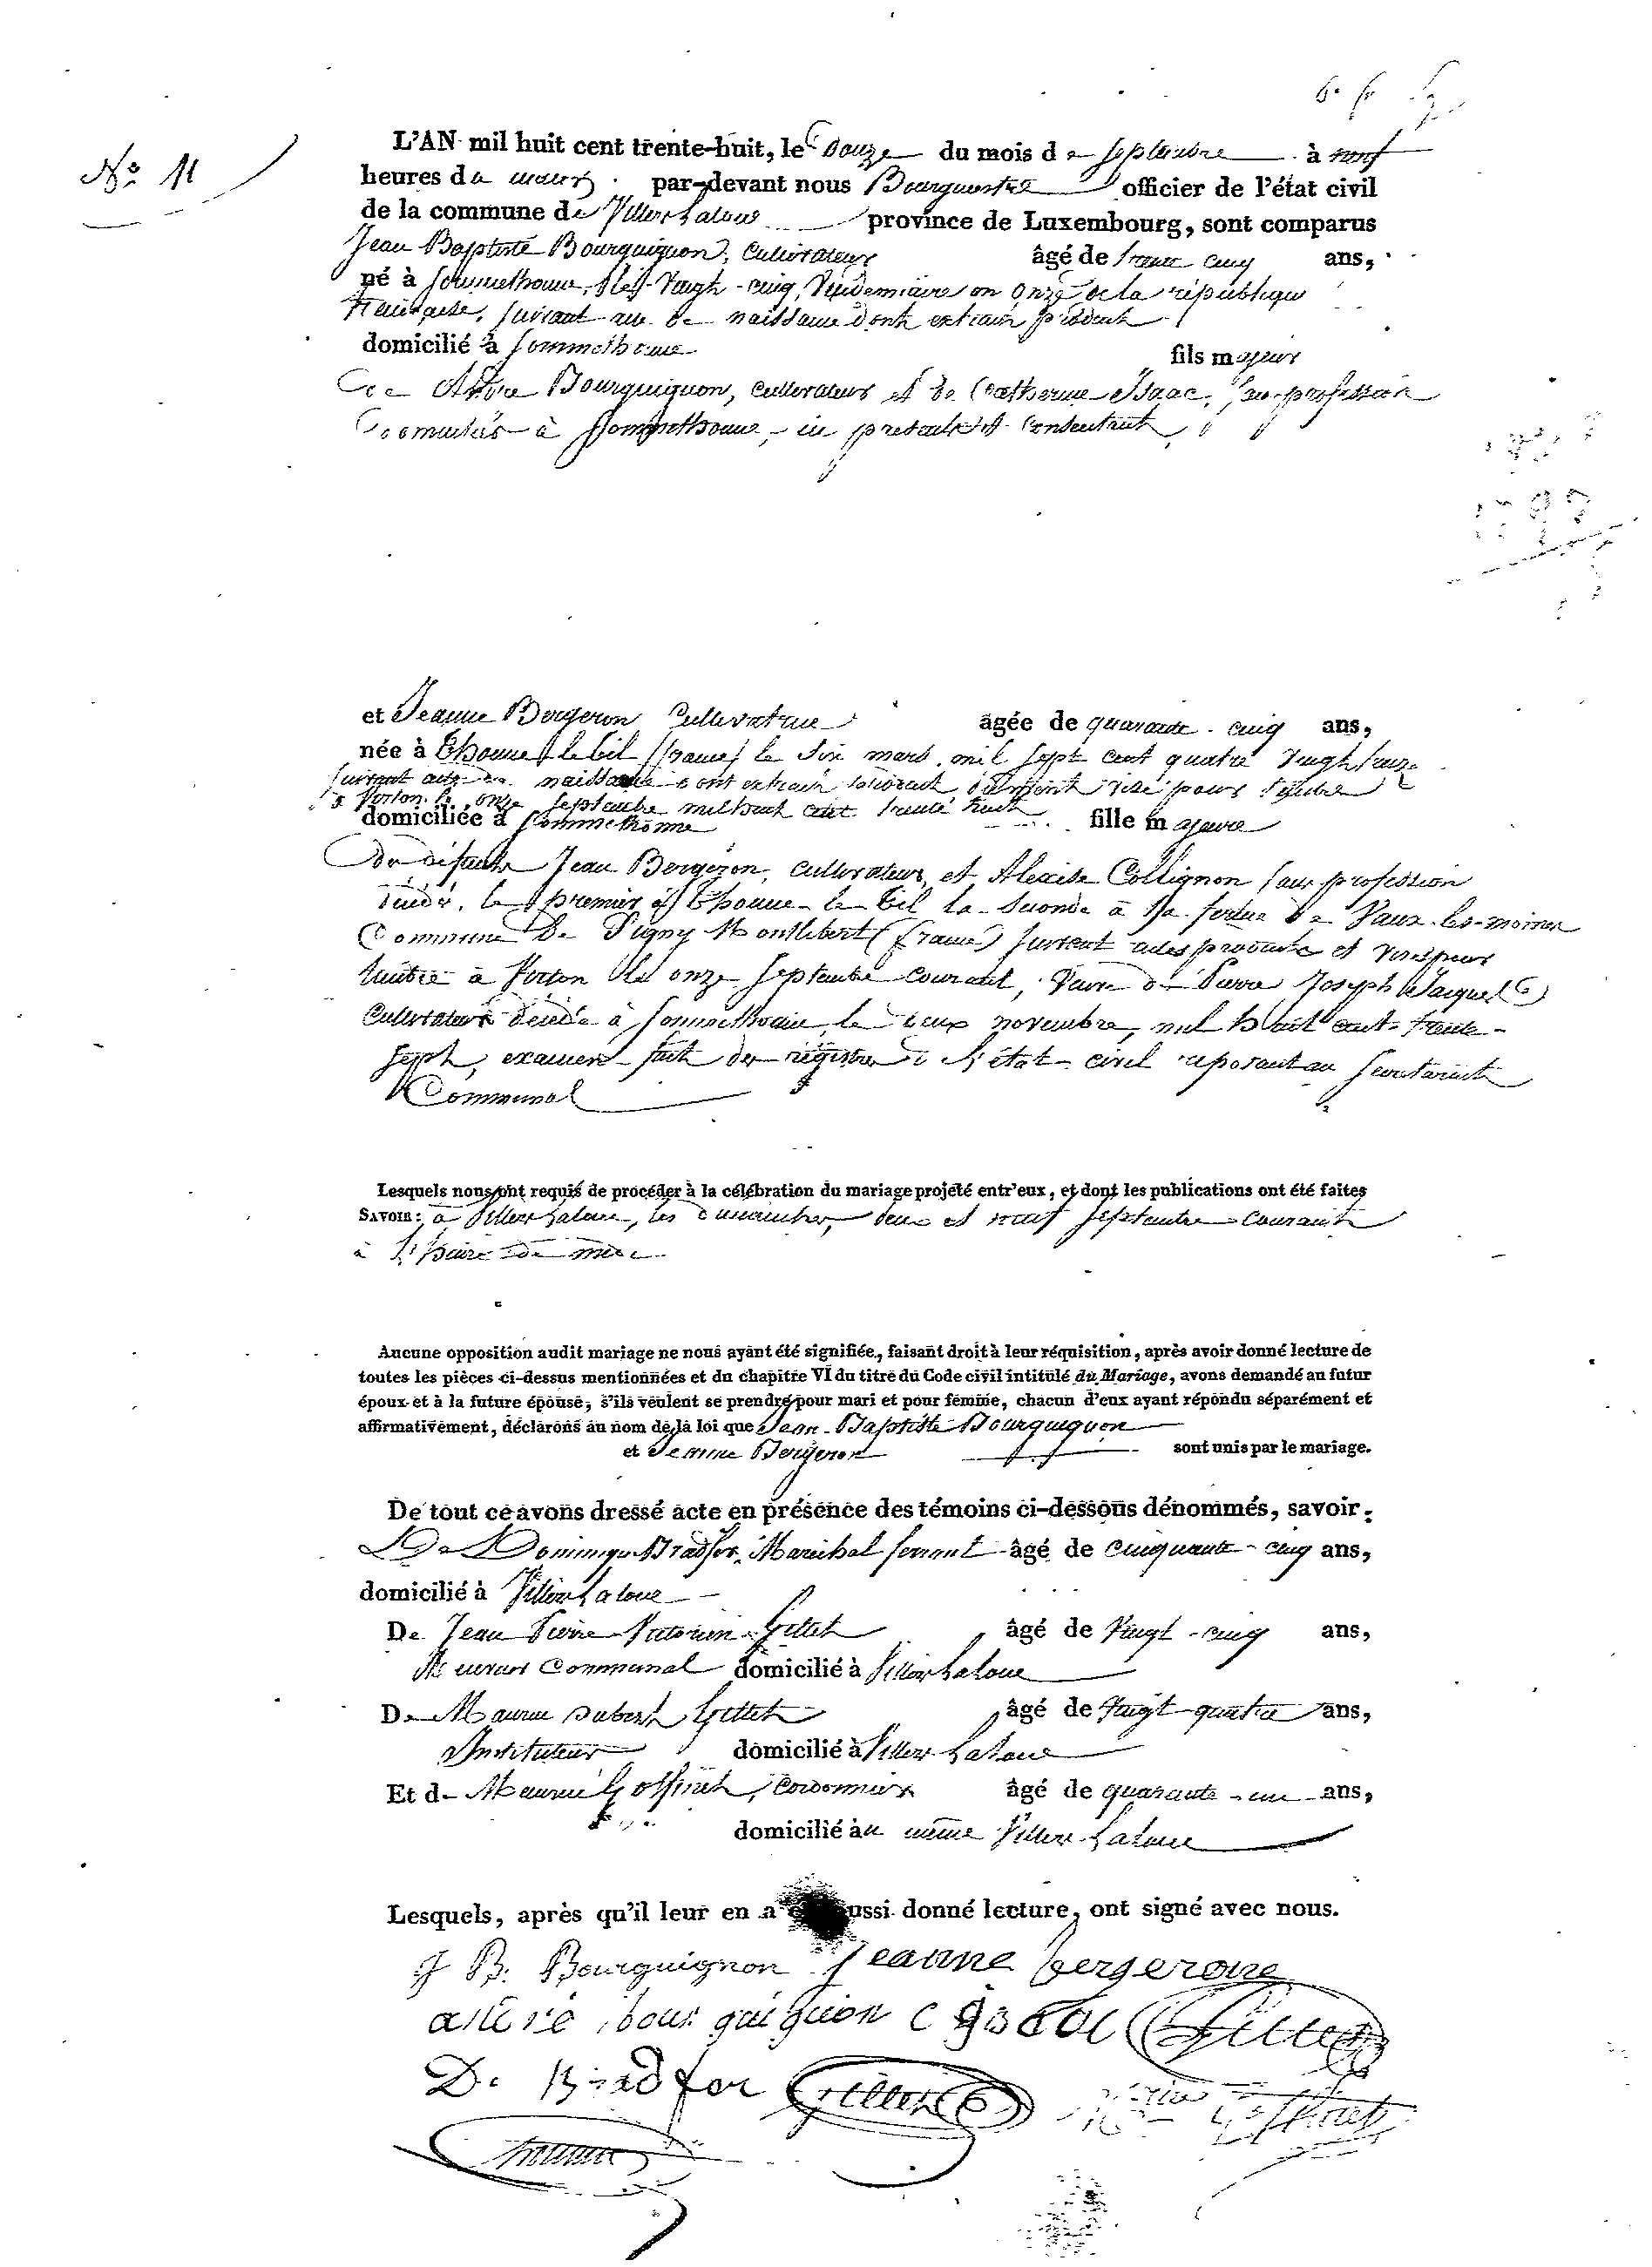 N° 11
L'AN mil huit cent trente-huit, le Douze du mois de Septembre à neuf
heures du matin par-devant nous Bourguemestre officier de l'état civil
de la commune de Villers Laloue province de Luxembourg, sont comparus
Jean Baptiste Bourguignon, Cultivateur âgé de trente cinq ans,
né à Sommethonne, le Vingt-cinq Vendemiaire an onze de la république
francaise, suivant acte de naissance dont extrait produit
domicilié à Sommethonne fils majeur
de Bourguignon, cultivateur et de Catherine Isaac, sans profession
Domiciliés à Sommethonne, ici présents et consentants
et Jeanne Bergeron Cultivatrice âgée de quarante-cinq ans,
née à Thonne le til (france) le Six mars mil sept cent quatre Vingt treize
suivant acte de naissance dont extrait visé pour timbre
à Virton le onze Septembre mil huit cent trente huit
domiciliée à Sommethonne fille majeure
de défunts Jean Bergeron, cultivateur, et Collignon sans profession
décédés, le premier à Thonne-le-til la seconde à la de Vaux-les-moines
Commune de Vigny Montlibert (france) suivant actes produits et visés pour
timbre à Virton le onze Septembre courant, Veuve de Pierre Joseph Jacques
Cultivateur décédé à Sommethonne, le deux novembre, mil huit cent trente-
sept, examen fait des registres de l'état-civil reposant au Secrétariat
Communal
Lesquels nous ont requis de procéder à la célébration du mariage projeté entr'eux, et dont les publications ont été faites
SAVOIR: à Villers Laloue, les dimanches, deux et neuf Septembre Courant
à l'heure de midi
Aucune opposition audit mariage ne nous ayant été signifiée, faisant droit à leur réquisition, après avoir donné lecture de
toutes les pièces ci-dessus mentionnées et du chapitre VI du titre du Code civil intitulé du Mariage, avons demandé au futur
époux et à la future épouse, s'ils veulent se prendre pour mari et pour femme, chacun d'eux ayant répondu séparément et
affirmativement, déclarons au nom de la loi que Jean-Baptiste Bourguignon
et Jeanne Bergeron sont unis par le mariage.
De tout ce avons dressé acte en présence des témoins ci-dessous dénommés, savoir:
De Dominique Bradfer, Maréchal ferrant âgé de cinquante-cinq ans,
domicilié à Villers Laloue
De Jean Pierre Victorien Gillet âgé de Vingt-cinq ans,
Receveur Communal domicilié à Villers Laloue
De Maurice Hubert Gillet âgé de Vingt-quatre ans,
Instituteur domicilié à Villers Laloue
Et de Maurice Goffinet, Cordonnier âgé de quarante-un ans,
domicilié au même Villers-Laloue
Lesquels, après qu'il leur en a été aussi donné lecture, ont signé avec nous.
J B. Bourguignon Jeanne bergerone
bourguignon Gillet
D. Bradfer Gillet Goffinet